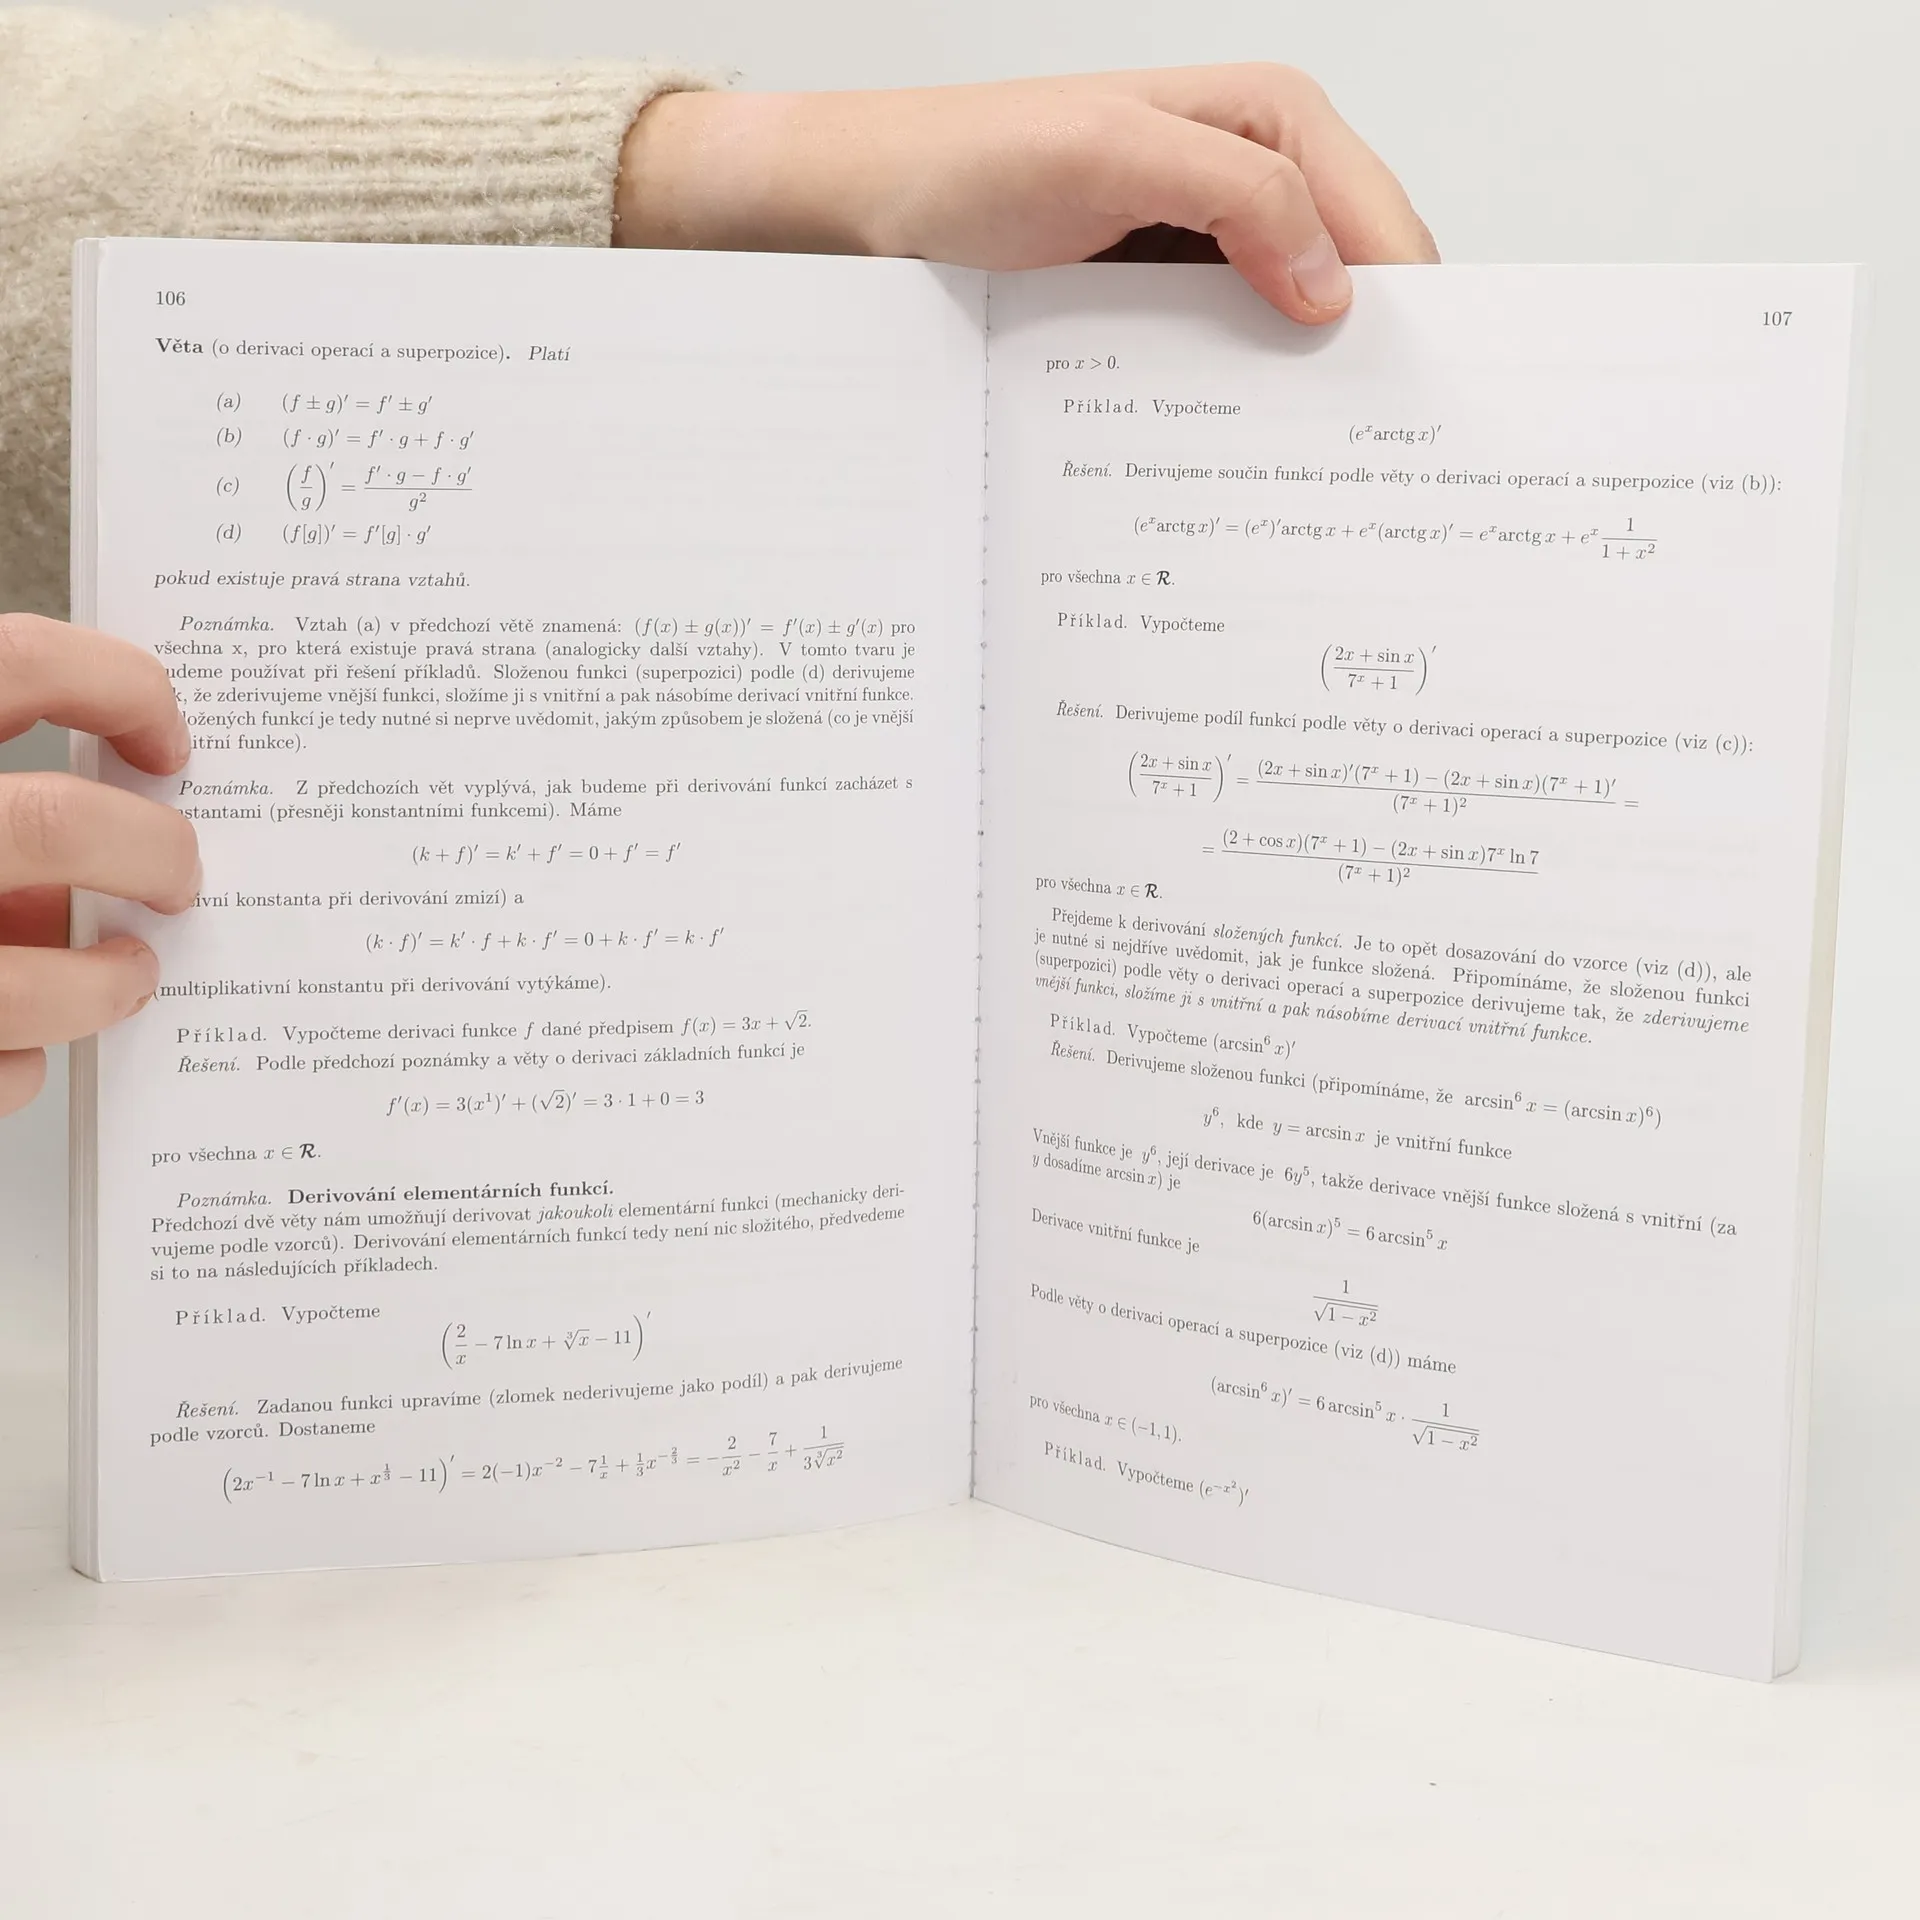 106
Věta (o derivaci operací a superpozice). Platí
(a) (f ± g)′ = f′ ± g′
(b) (f · g)′ = f′ · g + f · g′
(c) (f/g)′ = (f′ · g − f · g′)/g²
(d) (f[g])′ = f′[g] · g′
pokud existuje pravá strana vztahů.
Poznámka. Vztah (a) v předchozí větě znamená: (f(x) ± g(x))′ = f′(x) ± g′(x) pro
všechna x, pro která existuje pravá strana (analogicky další vztahy). V tomto tvaru je
udeme používat při řešení příkladů. Složenou funkci (superpozici) podle (d) derivujeme
k, že zderivujeme vnější funkci, složíme ji s vnitřní a pak násobíme derivací vnitřní funkce.
ložených funkcí je tedy nutné si neprve uvědomit, jakým způsobem je složená (co je vnější
itřní funkce).
Poznámka. Z předchozích vět vyplývá, jak budeme při derivování funkcí zacházet s
stantami (přesněji konstantními funkcemi). Máme
(k + f)′ = k′ + f′ = 0 + f′ = f′
ivní konstanta při derivování zmizí) a
(k · f)′ = k′ · f + k · f′ = 0 + k · f′ = k · f′
(multiplikativní konstantu při derivování vytýkáme).
Příklad. Vypočteme derivaci funkce f dané předpisem f(x) = 3x + √2.
Řešení. Podle předchozí poznámky a věty o derivaci základních funkcí je
f′(x) = 3(x¹)′ + (√2)′ = 3 · 1 + 0 = 3
pro všechna x ∈ R.
Poznámka. Derivování elementárních funkcí.
Předchozí dvě věty nám umožňují derivovat jakoukoli elementární funkci (mechanicky deri-
vujeme podle vzorců). Derivování elementárních funkcí tedy není nic složitého, předvedeme
si to na následujících příkladech.
Příklad. Vypočteme
(2/x − 7 ln x + ∛x − 11)′
Řešení. Zadanou funkci upravíme (zlomek nederivujeme jako podíl) a pak derivujeme
podle vzorců. Dostaneme
(2x⁻¹ − 7 ln x + x^(1/3) − 11)′ = 2(−1)x⁻² − 7 1/x + 1/3 x^(−2/3) = −2/x² − 7/x + 1/(3∛x²)
107
pro x > 0.
Příklad. Vypočteme
(eˣ arctg x)′
Řešení. Derivujeme součin funkcí podle věty o derivaci operací a superpozice (viz (b)):
(eˣ arctg x)′ = (eˣ)′ arctg x + eˣ (arctg x)′ = eˣ arctg x + eˣ 1/(1 + x²)
pro všechna x ∈ R.
Příklad. Vypočteme
((2x + sin x)/(7ˣ + 1))′
Řešení. Derivujeme podíl funkcí podle věty o derivaci operací a superpozice (viz (c)):
((2x + sin x)/(7ˣ + 1))′ = ((2x + sin x)′(7ˣ + 1) − (2x + sin x)(7ˣ + 1)′)/(7ˣ + 1)² =
= ((2 + cos x)(7ˣ + 1) − (2x + sin x)7ˣ ln 7)/(7ˣ + 1)²
pro všechna x ∈ R.
Přejdeme k derivování složených funkcí. Je to opět dosazování do vzorce (viz (d)), ale
je nutné si nejdříve uvědomit, jak je funkce složená. Připomínáme, že složenou funkci
(superpozici) podle věty o derivaci operací a superpozice derivujeme tak, že zderivujeme
vnější funkci, složíme ji s vnitřní a pak násobíme derivací vnitřní funkce.
Příklad. Vypočteme (arcsin⁶ x)′
Řešení. Derivujeme složenou funkci (připomínáme, že arcsin⁶ x = (arcsin x)⁶)
y⁶, kde y = arcsin x je vnitřní funkce
Vnější funkce je y⁶, její derivace je 6y⁵, takže derivace vnější funkce složená s vnitřní (za
y dosadíme arcsin x) je
6(arcsin x)⁵ = 6 arcsin⁵ x
Derivace vnitřní funkce je
1/√(1 − x²)
Podle věty o derivaci operací a superpozice (viz (d)) máme
(arcsin⁶ x)′ = 6 arcsin⁵ x · 1/√(1 − x²)
pro všechna x ∈ (−1, 1).
Příklad. Vypočteme (e^(−x²))′